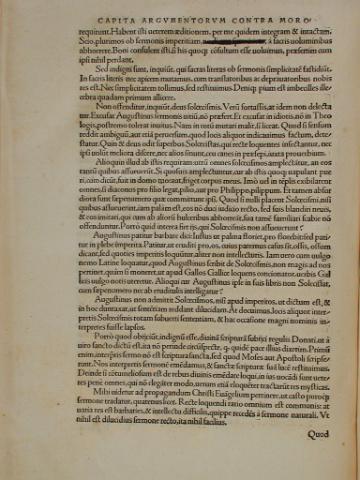 CAPITA ARGVMENTORVM CONTRA MORO-
requirunt. Habent isti ueterem æditionem, per me quidem integram & intactam.
Scio, plurimos ob sermonis imperitiam à sacris uoluminibus
abhorrere. Boni consulent isti, si his quoque consultum esse uoluimus, præsertim cum
ipsis nihil perdant.
Sed indigni sunt, inquiunt, qui sacras literas ob sermonis simplicitatē fastidiūt.
In sacris literis nec apicem mutamus, cum translatoribus ac deprauatoribus nobis
res est. Nec simplicitatem tollimus, sed restituimus. Deniq; pium est imbecilles ille-
cebra quadam primum allicere.
Non offenditur, inquiūt, deus solœcismis. Verū
fortassis, at idem non delecta
tur. Excusat Augustinus sermonis uitiū, nō præfert. Et excusat in idiotis, nō in Theo
logis, postremo tolerat inuitus. Nam in multi mutari malit, si liceat. Quod si sensum
reddit ambiguū, aut etiā peruersum, quod locis aliquot indicauimus factum, detes-
tatur. Quin & deus odit superbos Solœcistas, qui recte loquentes insectantur, nec
ipsi uolūt meliora discere, nec alios sinunt, cæci cæteris præeūtes, ipsi
Alioquin illud ab istis requiram utrū omnes solœcismos amplectātur, an eos
tantū quibus assueuerūt. Si quosuis amplectuntur, cur ab istis quoq; uapulat pue
ri, cum dicūt, fui in domo tota, frigus
omnes, si diaconus pro filio legat, filio, aut pro Philippo, philippum. Et tamen absur
diora sunt
quibus assueuerunt, iam palam est, eos nō duci iudicio recto, sed suis blandiri neuis,
& eos imitari, qui cum ab alioru hulceribus abhorreāt, sua tamē familiari scabie nō
offenduntur. Porrò quid interea fiet ijs, qui Solœcismis non assueuerunt?
Augustinus patitur barbare dici: Iustus ut palma floriet, pro florebit: sed pati-
tur in plebe imperita. Patitur, ut eruditi pro os, cuius parumes casus sit ossis, ossum
dicant, sed quoties imperitis loquūtur, aliter non intellecturis. Iam uero cum uulgo
nemo Latine loquatur, quod Augustinus scribit de Solœcismis, non magis ad nos
pertinet, quàm si moneret, ut apud Gallos Gallice loquens concionator, uocibus Gal-
lis uulgo notis uteretur. Alioqui cur Augustinus ipse in suis libris non Solœcissat,
cum sepenumero nec ab eruditulis intelligatur?
Augustinus non admittit Solœcismos, nisi apud imperitos, ut dictum est, &
in hoc duntaxat, ut sententiam reddant dilucidam. At docuimus, locis aliquot inter-
pretis Solœcismis rotam subuerti sententiam, & hac occasione magni nominis in-
terpretes fuisse lapsos.
Porrò quod obijciūt, indignū esse, diuinā scripturā fabrica regulis Donati, ut à
uiro sancto dictū est, ita nō perinde circūspecte, quod quidē pace illius dixerim. Primū
enim, interpretis sermo nō est scriptura sancta, sed quod Moses aut Apostoli scripse-
runt. Nos interpretis sermonē emēdamus, & sanctæ scripturæ suā lucē restituimus.
Deinde si cōtumeliosum est de rebus diuinis emēdate loqui, in ius uocādi sunt uete-
res penè omnes, qui nō elegāter modò, uerum etiā eloquēter tractarūt res mysticas.
Mihi uidetur ad propagandum Christi Euāgelium pertinere, ut casto puroq;
sermone tradatur, quatenus licet. Recte loquendi ratio omnium est communis: at
uaria res est barbaries, & intellectu difficilis, quippe recedēs à sermone naturali. Vt
nihil est dilucidius sermone recto, ita nihil facilius.
Quod